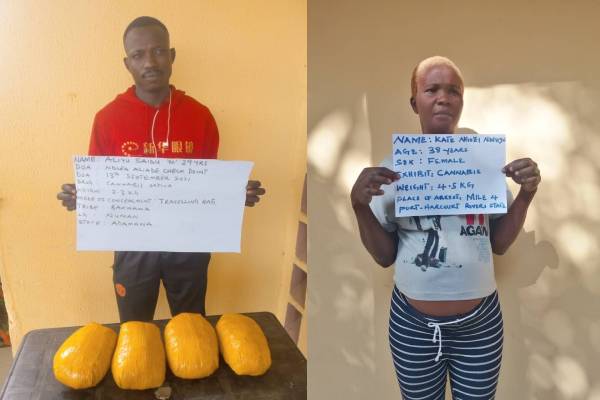 NAME: ALIYU SAIDU 'M' 29 YRS
DOA NDLEA ALIADE CHECK POINT
DOA 13TH SEPTEMBER 2021
DRUG CANNABIS SATIVA
WEIGHT 2.3 KG
MODE OF CONCEALMENT: TRAVELLING BAG
TRIBE BACHAMA
LG : NUMAN
STATE : ADAMAWA
NAME: KATE
AGE: 38 YEARS
SEX: FEMALE
EXHIBIT: CANNABIS
WEIGHT: 4.5 KG
PLACE OF ARREST, MILE 4
PORT-HARCOURT RIVERS STATE
AGAIN